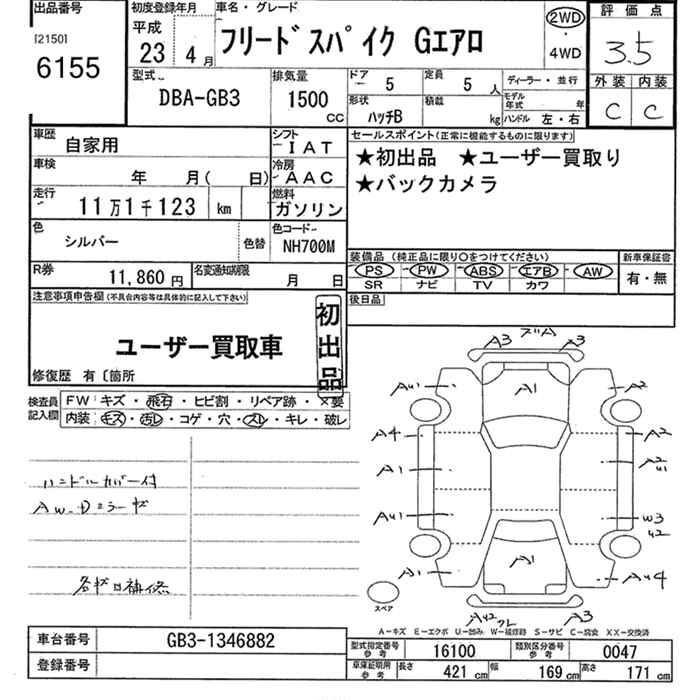 出品番号
[2150]
6155
初度登録年月
平成
23年 4月
車名・グレード
フリードスパイク Gエアロ
2WD
・
4WD
評価点
3.5
外装 内装
C C
型式
DBA-GB3
排気量
1500
CC
ドア 5
定員 5 人
形状 ハッチB
積載 kg
ディーラー・並行
モデル年式 年
ハンドル 左・右
車歴 自家用
シフト IAT
車検 年 月( 日)
冷房 AAC
走行 11万1千123 km
燃料 ガソリン
色 シルバー
色替
色コード NH700M
R券 11,860円
名変通知期限 月 日
セールスポイント(正常に機能するものに限ります)
★初出品 ★ユーザー買取り
★バックカメラ
装備品 (純正品に限り○をつけてください)
PS PW ABS エアB AW
SR ナビ TV カワ
新車保証書
有・無
後日品
注意事項申告欄(不具合内容等は具体的に記入して下さい)
ユーザー買取車
初出品
修復歴 有〔箇所
検査員記入欄
FW キズ・飛石・ヒビ割・リペア跡・×要
内装 キズ・汚レ・コゲ・穴・スレ・キレ・破レ
ハンドルカバー付
AW.Dミラーキズ
各キズ凹補修
A3 ズリA A3
AU1 A1 A2
A4 A2
A1 A2
AU1
AU1 W3
U2
A1 A1 AU4
スペア
AU2 ワレ A3
A-キズ E-エクボ U-凹み W-補修跡 S-サビ C-腐食 XX-交換済
車台番号 GB3-1346882
登録番号
型式指定番号 参考 16100
類別区分番号 参考 0047
車庫証明用 参考 長さ 421 cm 幅 169 cm 高さ 171 cm